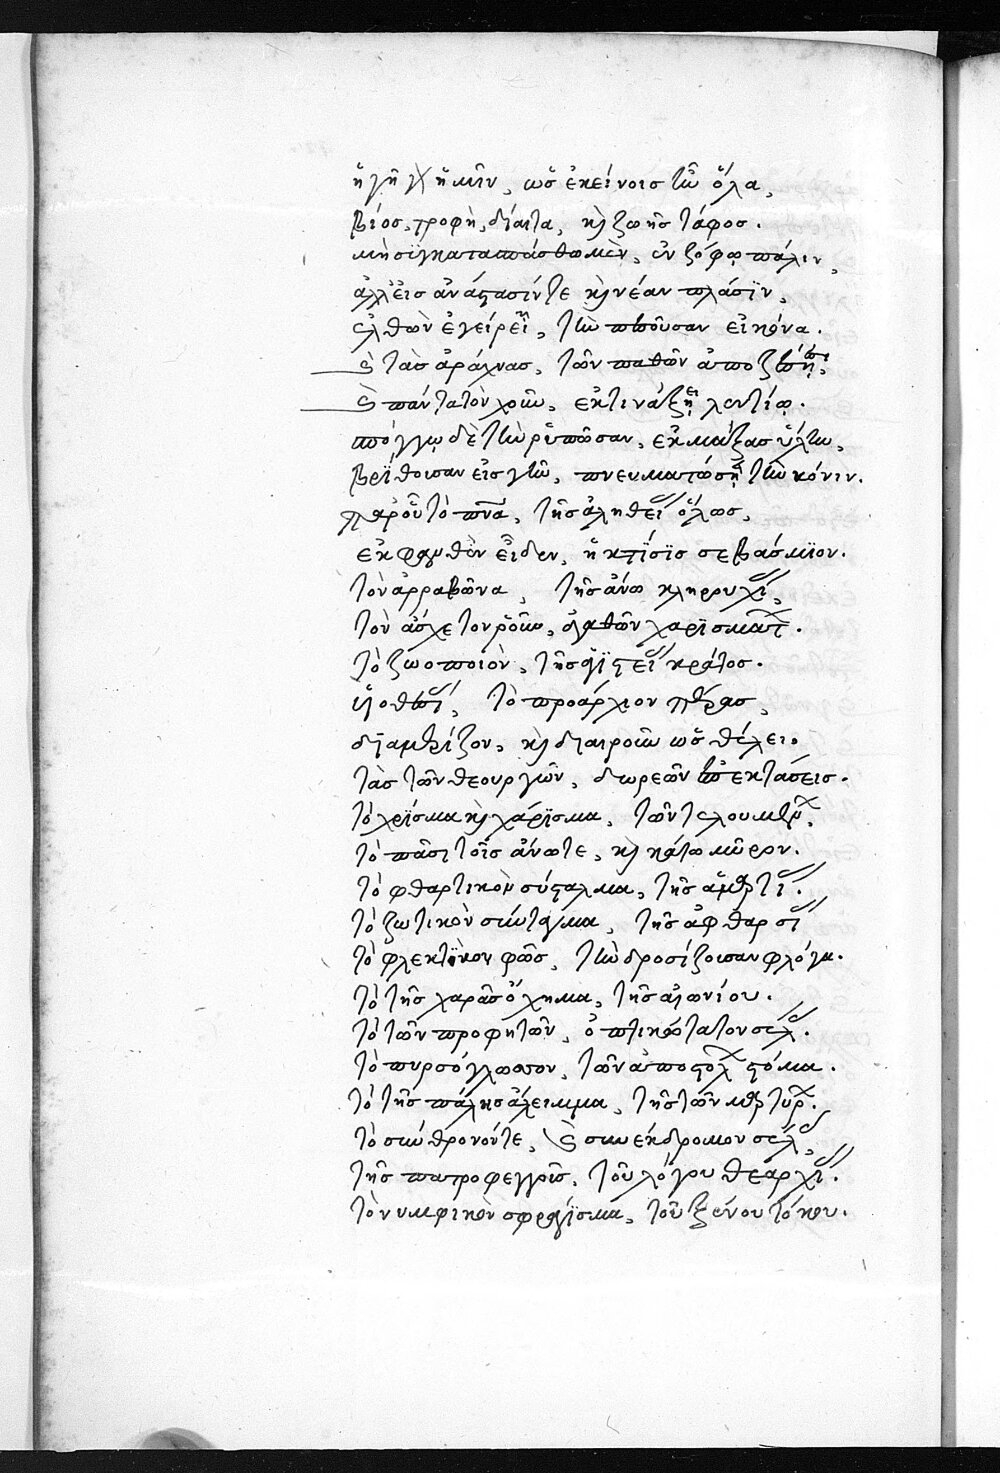 ἡ γῆ γὰρ ἡμῖν, ὡς ἐκείνοις ἦν ὅλα,
βίος, τροφὴ, δίαιτα, καὶ ζωῆς τάφος.
μὴ συγκατασπάσθωμεν, ἐν ζόφῳ πάλιν,
ἀλλ' εἰς ἀνάστασίν τε καὶ νέαν πλάσιν,
ἐλθὼν ἐγείρει, τὴν πεσοῦσαν εἰκόνα.
καὶ τὰς ἀράχνας, τῶν παθῶν ἀποξέσῃ,
καὶ πάντα τὸν χοῦν, ἐκτινάξῃ λεντίῳ.
σπόγγῳ δὲ τὴν ῥυπῶσαν, ἐκμάξας ὕλην,
βρίθουσαν εἰς γῆν, πνευματώσῃ τὴν κόνιν.
παρὸν τὸ πνα, τῆς ἀληθείας ὅλως,
ἐκφανθὲν εἶδεν, ἡ κτίσις σεβάσμιον.
τὸν ἀρραβῶνα, τῆς ἄνω κληρουχίας,
τὸν ἄσχετον ῥοῦν, ἀγαθῶν χαρισμάτων.
τὸ ζωοποιὸν, τῆς ἁγιστείας κράτος.
υἱοθεσίας, τὸ προάρχιον πέρας,
διαμερίζον, καὶ διαιροῦν ὡς θέλει.
τὰς τῶν θεουργῶν, δωρεῶν ἐπεκτάσεις.
τὸ χρίσμα καὶ χάρισμα, τῶν τελουμένων.
τὸ πᾶσι τοῖς ἄνω τε, καὶ κάτω μῦρον.
τὸ φθαρτικὸν σύσταλμα, τῆς ἁμαρτίας.
τὸ ζωτικὸν σύνταγμα, τῆς ἀφθαρσίας
τὸ φλεκτικὸν φῶς, τὴν δροσίζουσαν φλόγα.
τὸ τῆς χαρᾶς ὄχημα, τῆς αἰωνίου.
τὸ τῶν προφητῶν, ὀπτικώτατον σέλας.
τὸ πυρσόγλωσσον, τῶν ἀποστόλων στόμα.
τὸ τῆς πάλης ἄλειμμα, τῆς τῶν μαρτύρων.
τὸ σύνθρονόν τε, καὶ συνέκδρομον σέλας,
τῆς πατροφεγγοῦς, τοῦ λόγου θεαρχίας.
τὸ νυμφικὸν σφράγισμα, τοῦ ξένου τόκου.